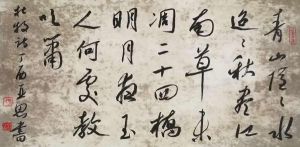 青山隱〻水
迢〻秋盡江
南草未
凋二十四橋
明月夜玉
人何處教
吹簫
杜牧詩丁酉書